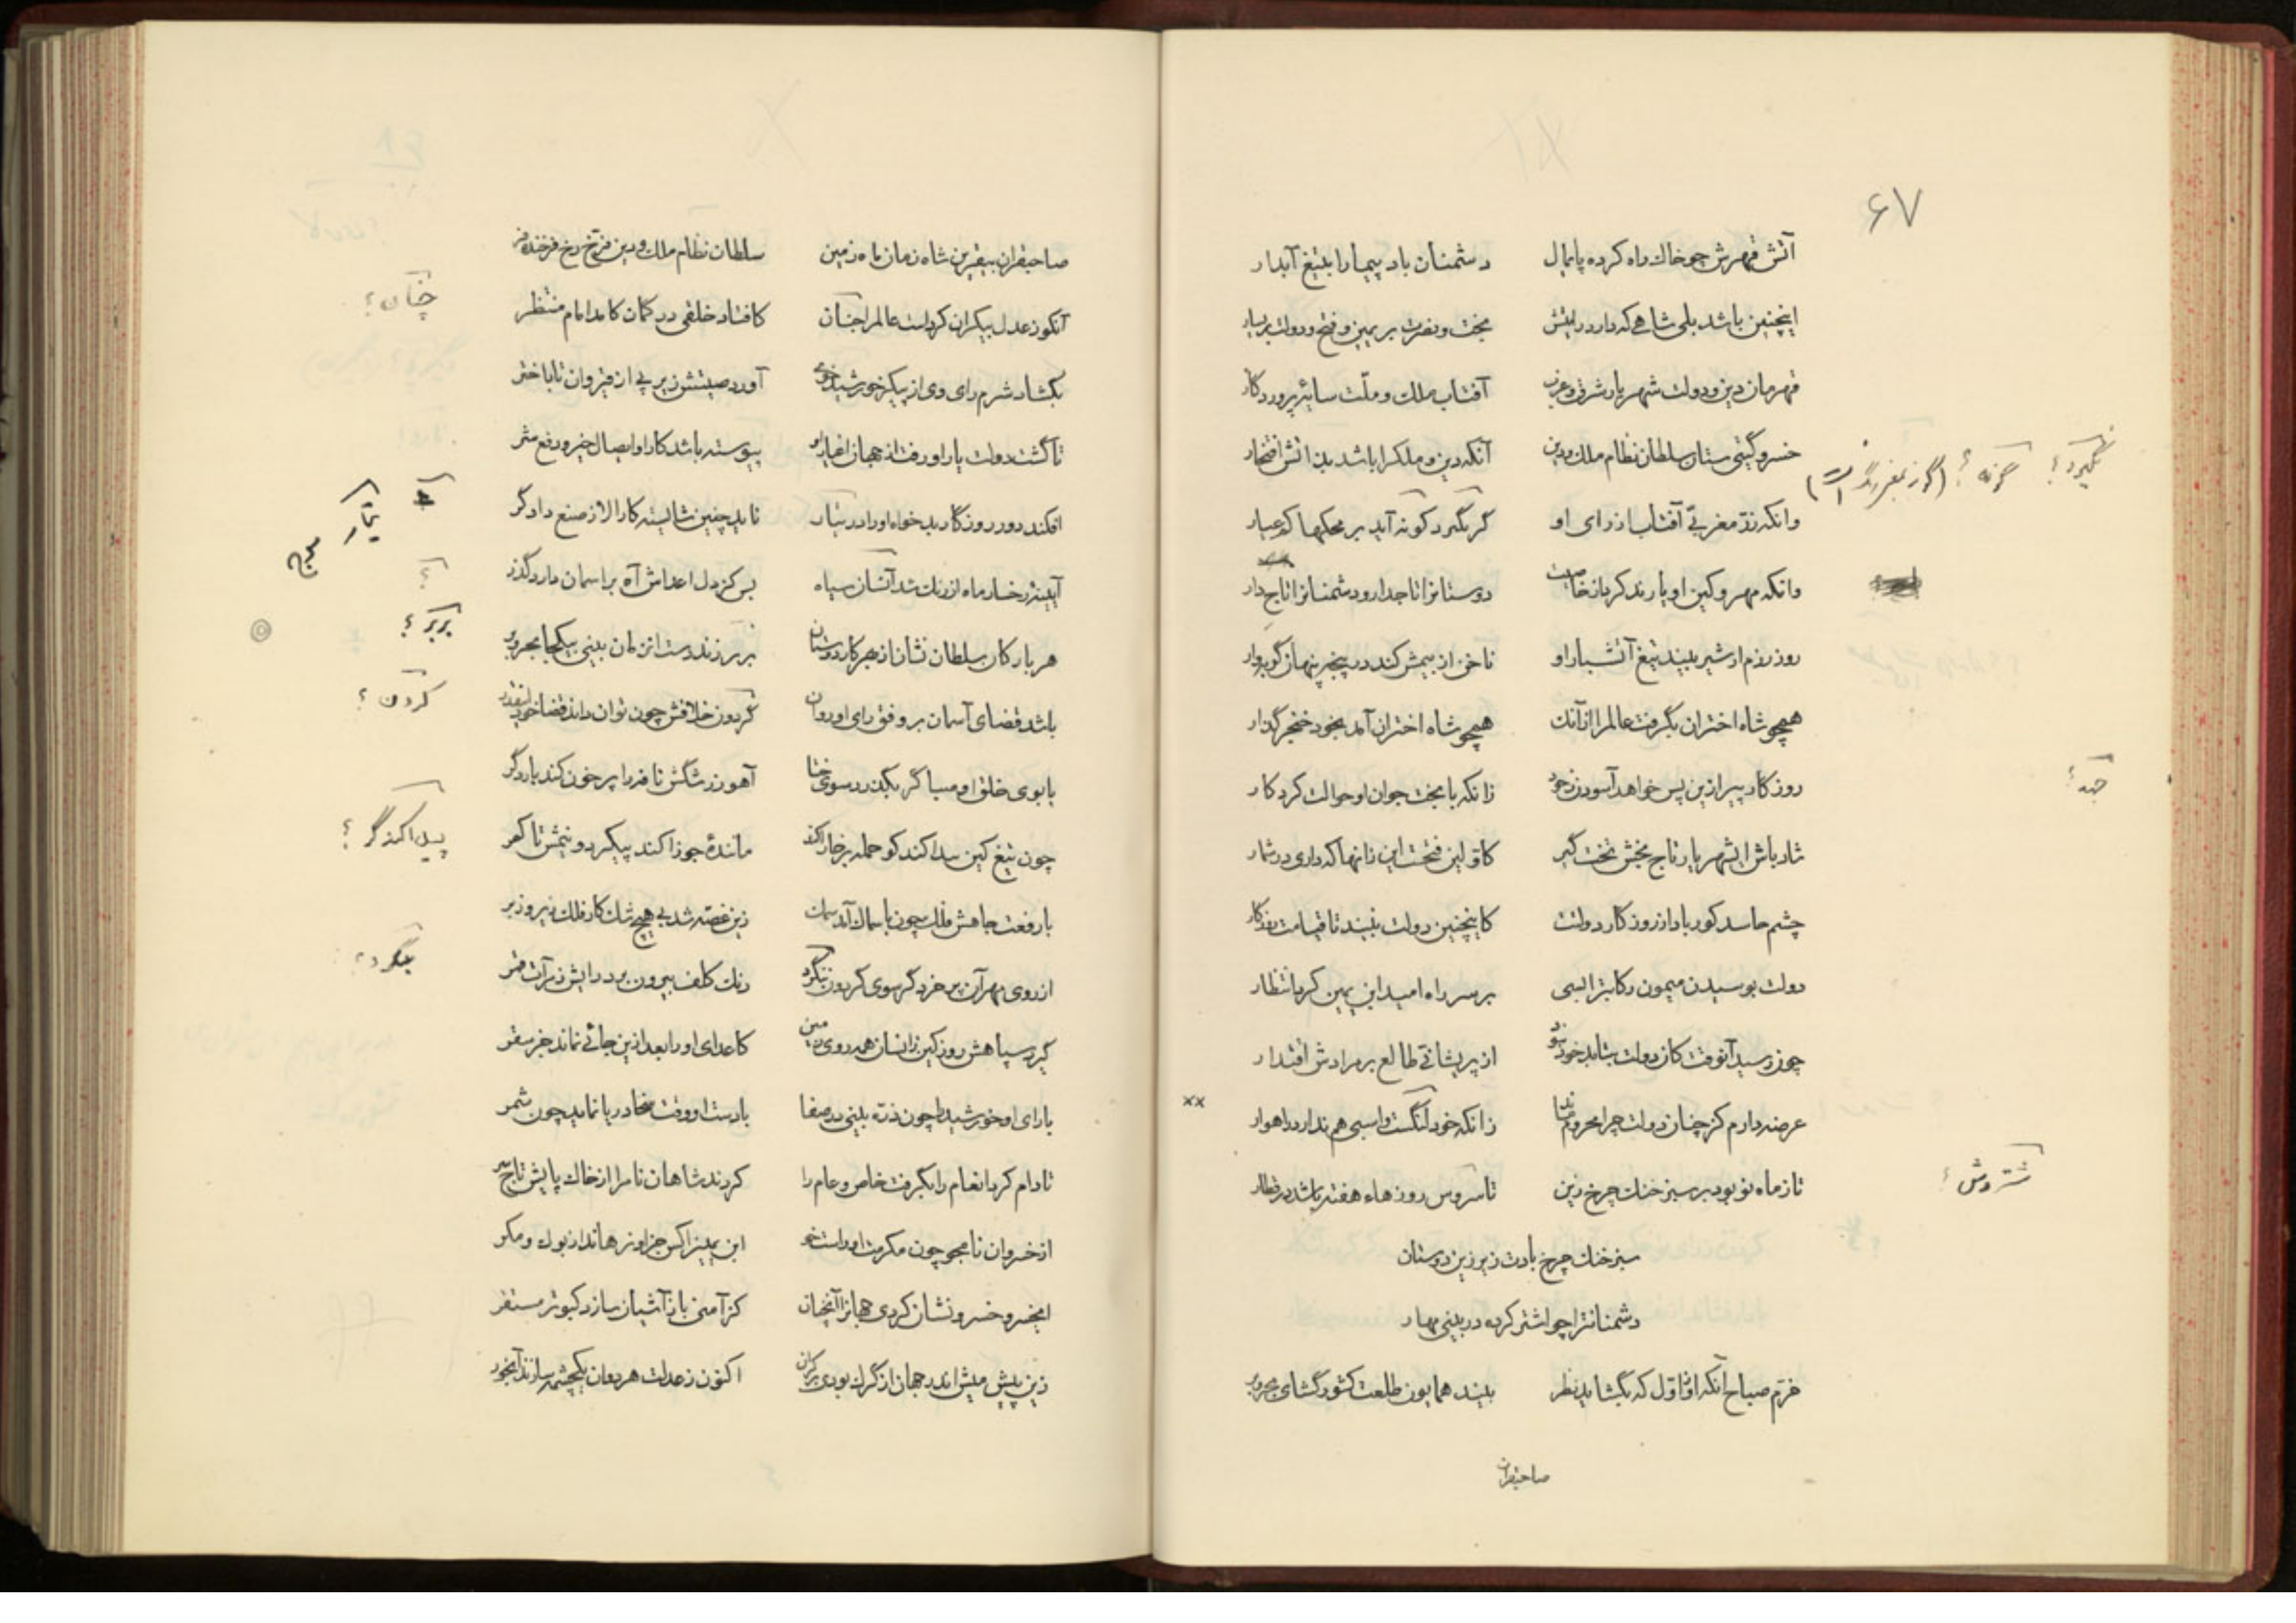 ۶۷
آتش قهرش چو خاك راه کرده پایمال دشمنان باد پیما را بتیغ آبدار
اینچنین باشد بلی شاهی که دارد رایتش بخت و نصرت بر یمین و فتح و دولت بر یسار
قهرمان دین و دولت شهریار شرق و غرب آفتاب ملك و ملّت سایهٔ پروردگار
خسرو گیتی ستان سلطان نظام ملك و دین آنکه دین و ملك را باشد بذاتش افتخار
وانکه زرّ مغربیّ آفتاب از رای او گر نگیرد کونه آید بر محکها کم عیار
وانکه مهر و کین او یا رند کرد از خاصیت دوستانرا تاجدار و دشمنانرا تاج دار
روز رزم ار شیر بیند تیغ آتشبار او ناخن از بیمش کند در پنجه پنهان گربه‌وار
همچو شاه اختران بگرفت عالم را از آنك همچو شاه اختران آمد بخود خنجر گذار
روزگار پیر ازین پس خواهد آسودن ز خود زانکه با بخت جوان او حوالت کرد کار
شاد باش ای شهریار تاج بخش تخت گیر کاوّلین فتحست این زانها که داری در شمار
چشم حاسد کور باد از روزکار دولتت کاینچنین دولت نبیند تا قیامت روزکار
دولت بوسیدن میمون رکابترا بسی بر سر راه امید ابن یمین کرد انتظار
چون رسید آنوقت کان دولت بیابد خود نبود از پریشانیّ طالع بر مرادش اقتدار
عرضه دارم کز چنان دولت چرا محروم ماند زانکه خود لنگست و اسبی هم ندارد راهوار
تا ز ماه نو بود بر سبز خنك چرخ زین تا سروس روزهاء هفته باشد در قطار
سبز خنك چرخ بادت زیر زین دوستان
دشمنانترا چو اشتر کرده در بینی مهار
خرّم صباح آنکه او اوّل که بگشاید نظر بیند همایون طلعت کشور گشای بحر و بر
صاحبقران
نگیرد؟ گونه؟
جَهد؟
شتروش؟
صاحبقران بیقرین شاه زمان ماه زمین سلطان نظام ملك و دین فرّخ رخ فرخنده فر
آنکو ز عدل بیکران کردست عالم را جنان کافتاد خلقی در گمان کامد امام منتظر
بگشاد شرم رای وی از پیکر خورشید خوی آورد صیتش زیر پی از قیروان تا باختر
تا گشت دولت یار او رفت از جهان اغیار او پیوسته باشد کار او ایصال خیر و دفع شر
افکند دور روزگار بدخواه او را در تبار ناید چنین شایسته کار الا ز صنع دادگر
آیینهٔ رخسار ماه از زنك شد آنسان سیاه بس کز دل اعداش آه بر اسمان دارد گذر
هر بار کان سلطان نشان از بهر کار دوستان بربر زند دست انزمان بینی بیکجا بحر و بر
باشد قضای آسمان بر وفق رای او روان گردون خلافش چون توان داند قضا خود اینقدر
با بوی خلق او صبا گر بگذرد سوی ختا آهو ز رشگش نافه را پر خون کند بار دگر
چون تیغ کین پیدا کند کو حمله بر خارا کند مانندهٔ جوزا کند پیکر دو نیمش تا کمر
با رفعت جاهش فلك چون با سماك آمد سمك زین غصّه شد بی هیچ شك کار فلك زیر و زبر
از روی مهر آن پر خرد گر سوی گردون بنگرد رنك کلف بیرون برد رایش ز مرآت قمر
گیرد سپاهش روز کین زانسان همه روی زمین کاعدای او را بعد ازین جائی نماند جز سقر
با رای او خورشید را چون ذرّه بینی در صفا با دست او وقت سخا دریا نماید چون شمر
تا دام کرد انعام را بگرفت خاص و عام را کردند شاهان نام را از خاك پایش تاج سر
از خسروان نامجو چون مکرمت او راست خو ابن یمین را کس جز او نرهاند از بوك و مگر
ای خسرو خسرو نشان کردی جهانرا آنچنان کز آمنی باز آشیان سازد کبوتر مستقر
زین پیش میش اندر جهان از گرك بودی بر کران اکنون ز عدلت هر دوان یکچشمه سازند آبخور
چنان؟
بربر؟
کردن؟
پیدا کند گر؟
بنگرد؟